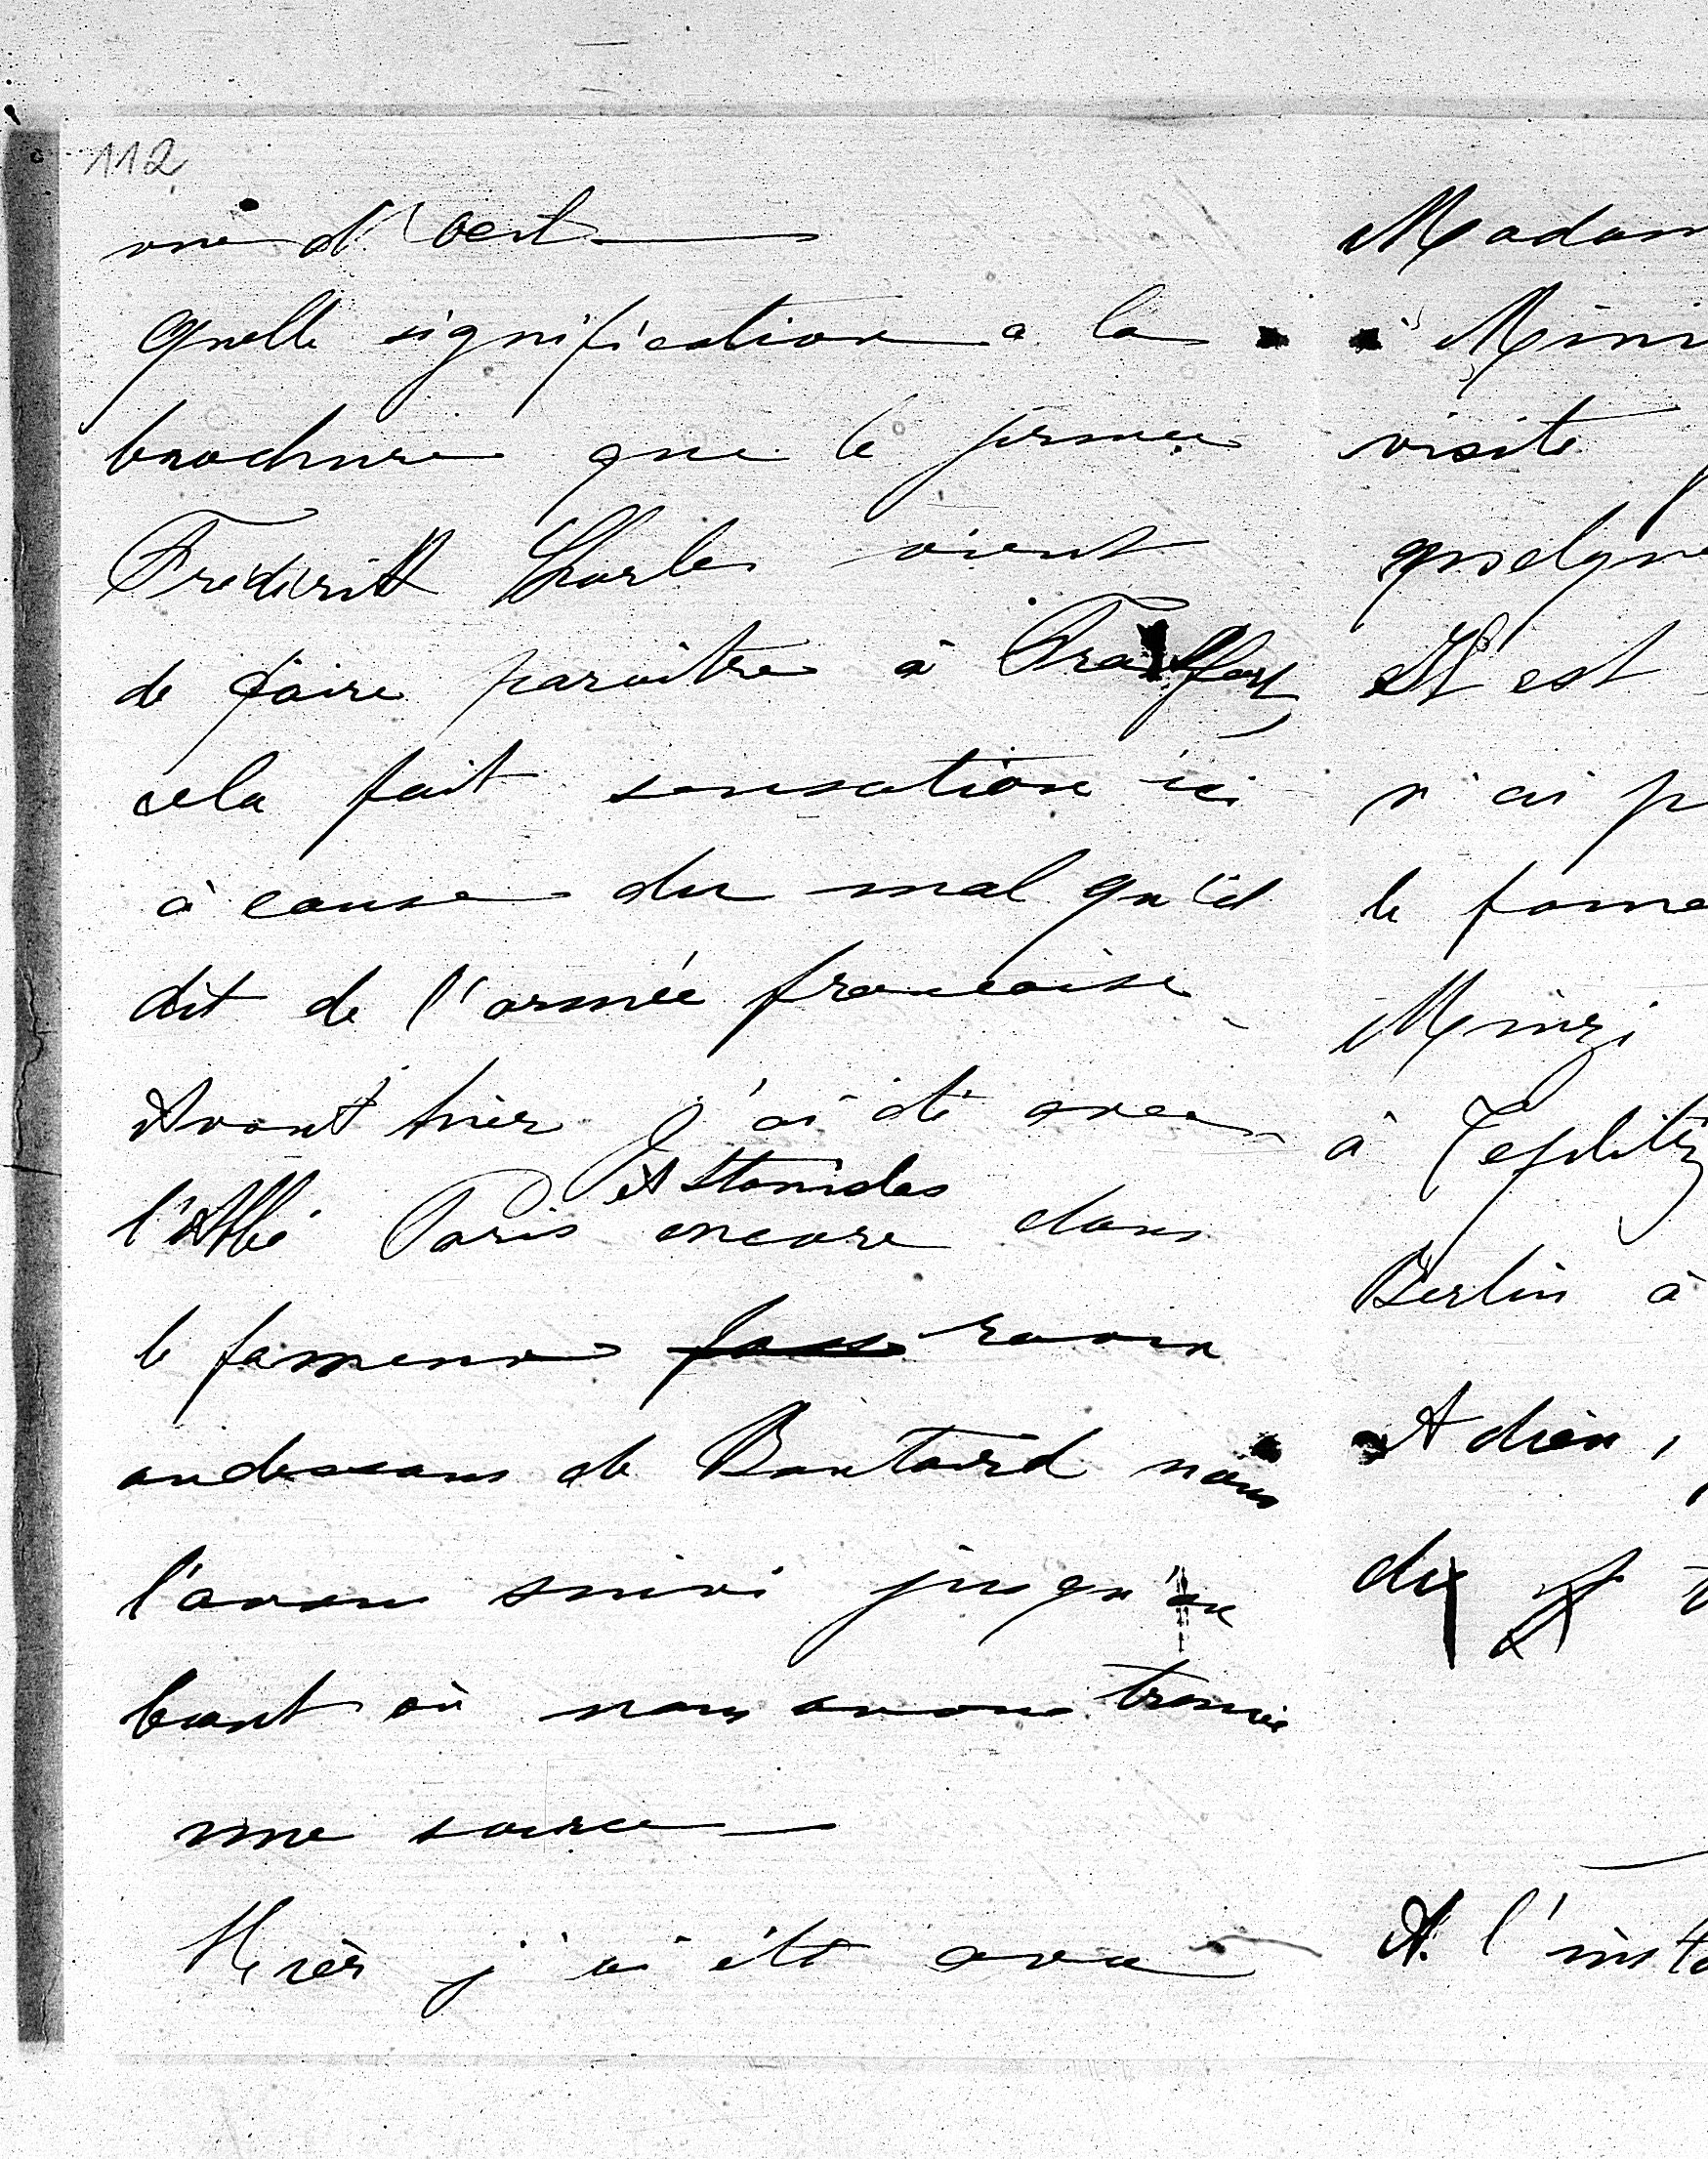 112
d'oeil
Quelle signification a la
brochure que le prince
Frédéritt Charles vient
de faire paroitre à Franffort
cela fait sensation ici
à cause du mal qu'il
dit de l'armée francaise
Avant hier j'ai été avec
et Stanislas
l'Abbé Paris encore dans
le fameux ravin
audessous de Boutard nous
l'avons suivi jusqu'au
bout où nous avons trouvé
une source
Hier j'ai été avec
Madam
à Mimi
visite
quelque
Il est
n'ai p
le fame
Minzi
à Teplitz
Berlin à
Adieu,
du
A l'insta